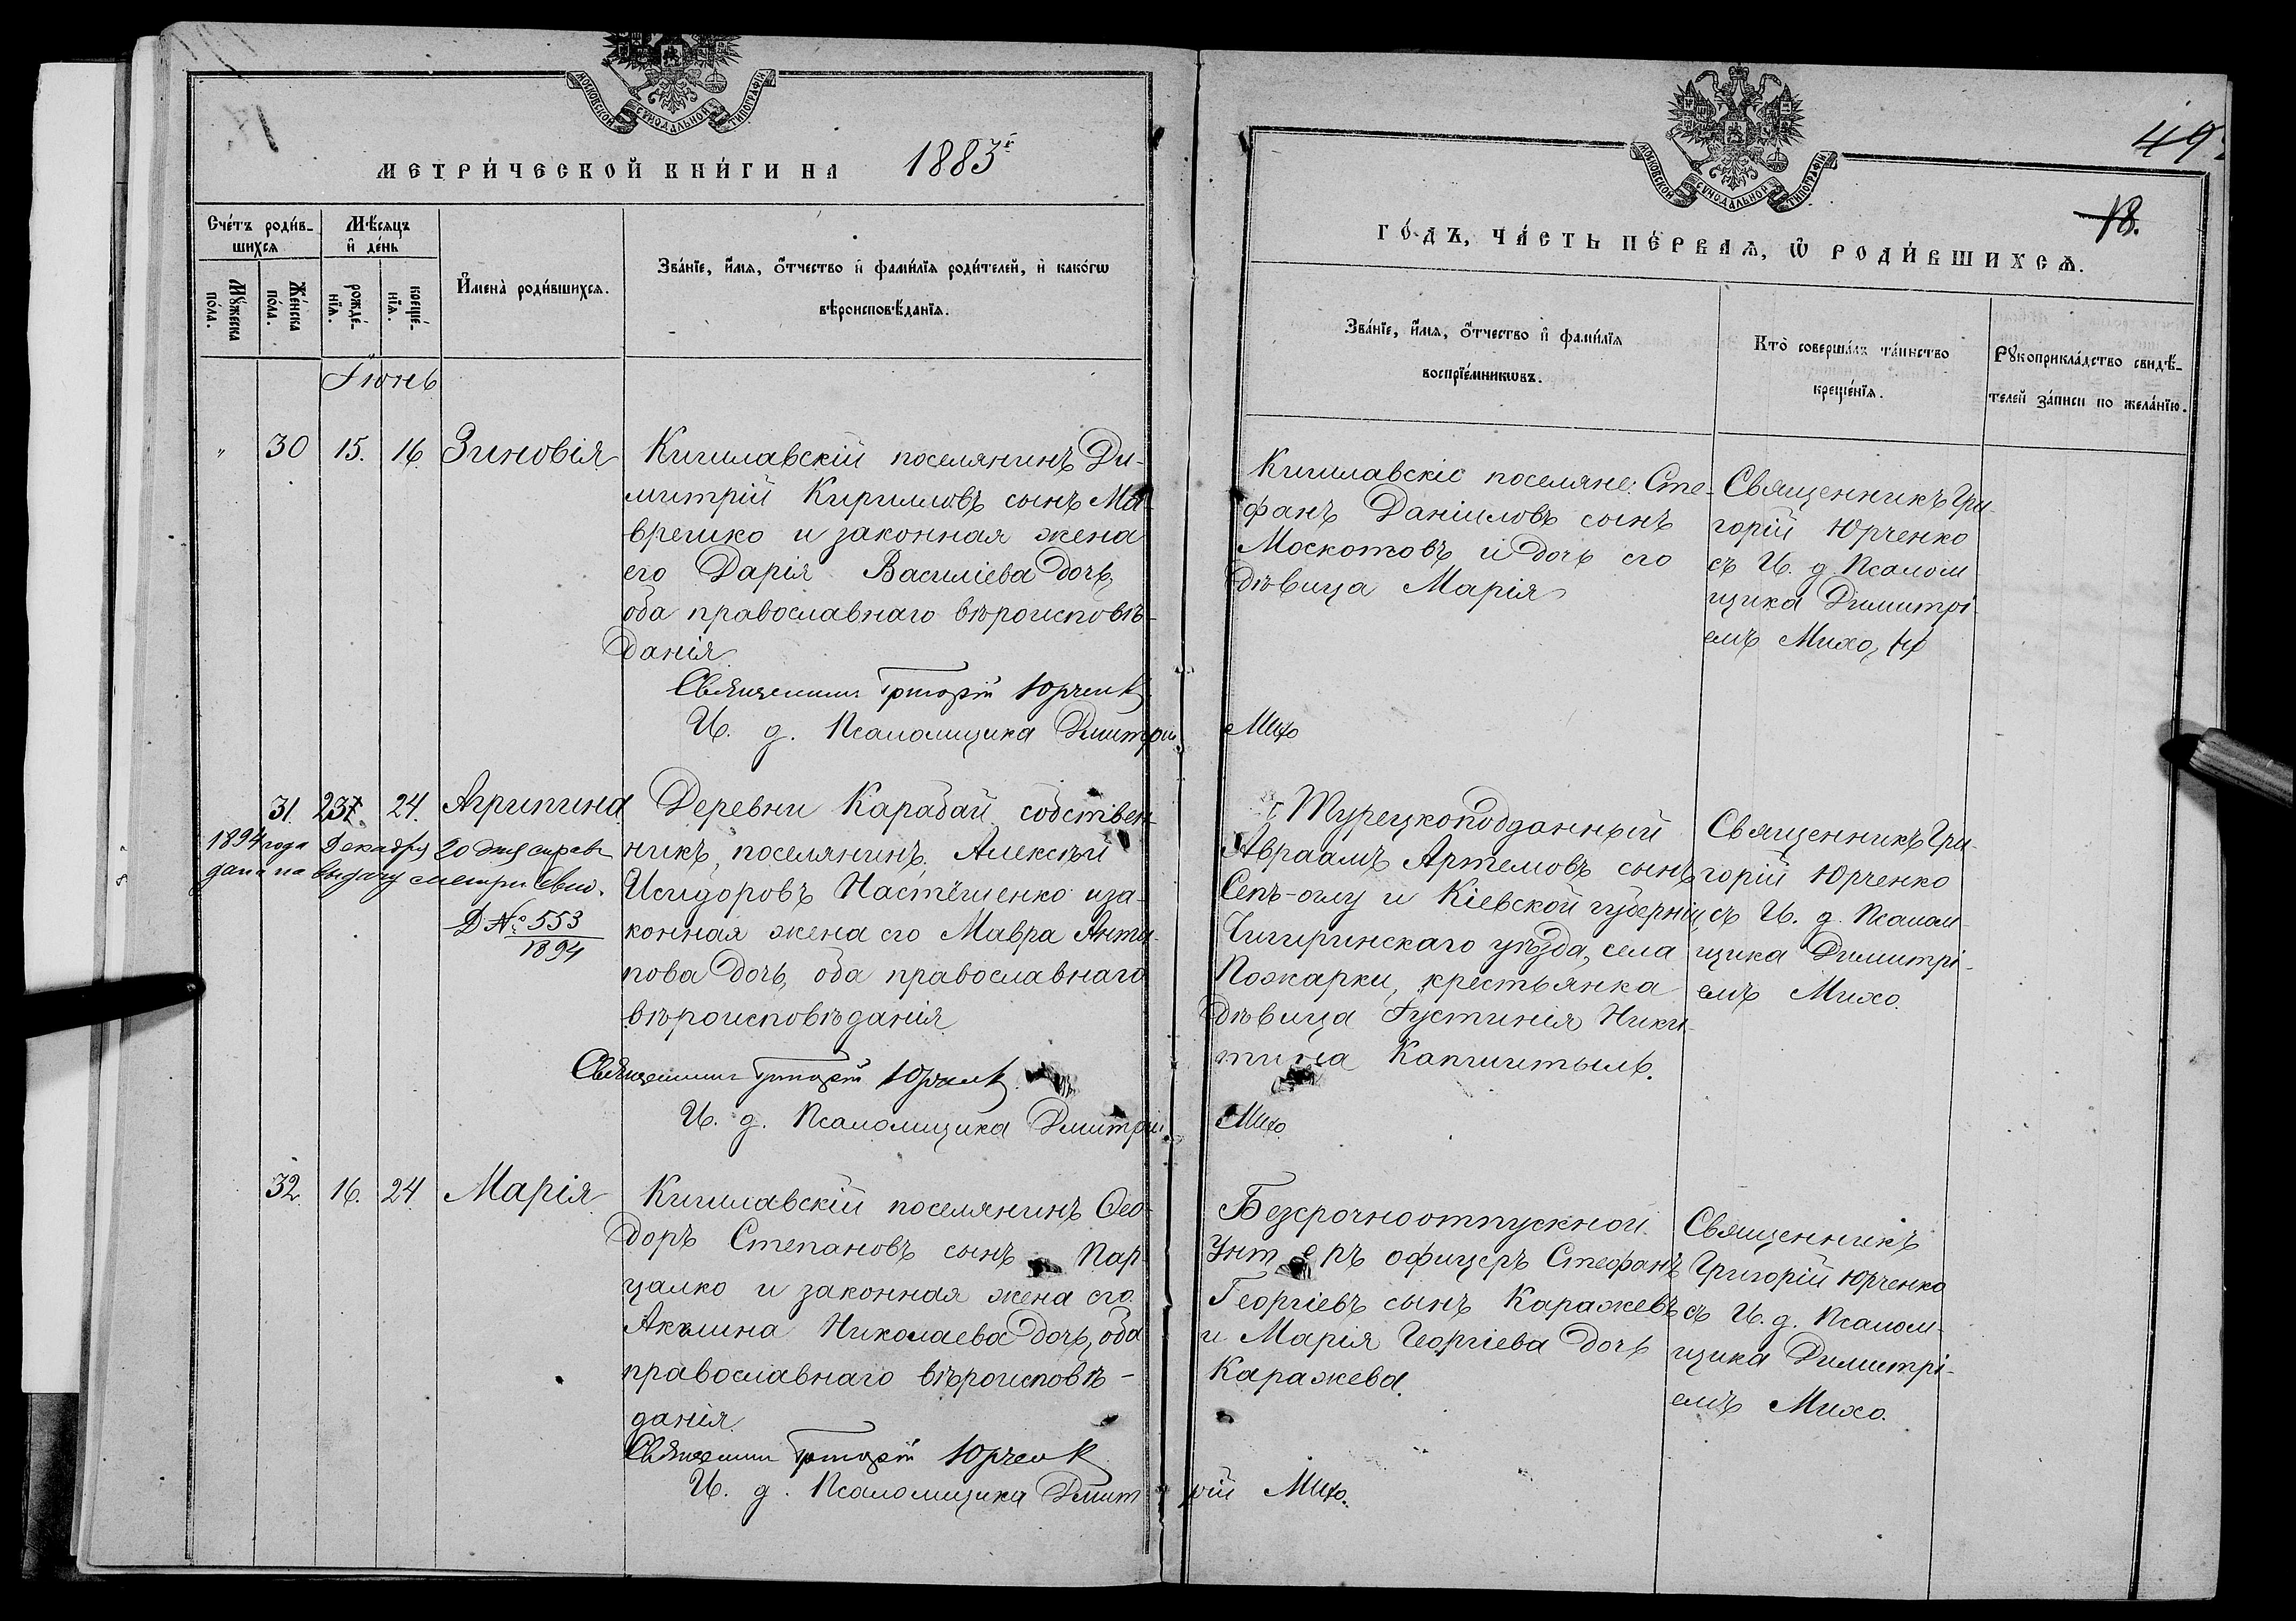 МОСКОВСКОЙ СУНОДАЛЬНОЙ ТИПОГРАФІИ
МЕТРИ́ЧЕСКОЙ КНИ́ГИ НА 1883й
Сче́тъ роди́в-
шихся
Мѣ́сяцъ
и҆ де́нь
Мꙋ́жеска
по́ла.
Же́нска
по́ла.
рожде́-
нїѧ.
креще́-
нїѧ.
И҆мена̀ роди́вшихсѧ.
Зва́нїе, и҆́мѧ, о҆́тчество и҆ фами́лїѧ роди́телей, и҆ како́гѡ
вѣроисповѣ́данїѧ.
Іюнь
" 30 15. 16. Зиновія
Кишлавскій поселянинъ Ди-
митрій Кирилловъ сынъ Ма-
врешко и законная жена
его Дарія Василіева дочь,
оба православнаго вѣроисповѣ-
данія.
Священникъ Григорій Юрченко
И. д. Псаломщика Дмитрій Михо
31. 23. 24. Агрипина
1894 года Декабря 20 дня справ
дана на выдачу метри. Свид.
Д № 553
1894
Деревни Карабай собствен-
никъ, поселянинъ, Алексѣй
Исидоровъ Настѣшенко и за-
конная жена его Мавра Анти-
пова дочь, оба православнаго
вѣроисповѣданія.
Священникъ Григорій Юрченко.
И. д. Псаломщика Дмитрій Михо
32. 16. 24. Марія
Кишлавскій поселянинъ Ѳео-
доръ Степановъ сынъ Пар-
цалко и законная жена его
Акилина Николаева дочь, оба
православнаго вѣроисповѣ-
данія.
Священникъ Григорій Юрченко
И. д. Псаломщика Дмитрій Михо.
49
18.
МОСКОВСКОЙ СУНОДАЛЬНОЙ ТИПОГРАФІИ
ГО́ДЪ, ЧА́СТЬ ПЕ́РВАѦ, Ѡ҆ РОДИ́ВШИХСѦ.
Зва́нїе, и҆́мѧ, о҆́тчество и҆ фами́лїѧ
воспрїе́мникѡвъ.
Кто̀ соверша́лъ та́инство
креще́нїѧ.
Рꙋкоприкла́дство свидѣ́-
телей за́писи по жела́нїю.
Кишлавскіе поселяне: Сте-
фанъ Даніиловъ сынъ
Москотовъ и дочь его
дѣвица Марія
Священникъ Гри-
горій Юрченко
съ И. д. Псалом
щика Димитрі-
емъ Михо,
Турецкоподданный
Авраамъ Артемовъ сынъ
Сепъ-оглу и Кіевской губерніи,
Чигиринскаго уѣзда, села
Пожарки, крестьянка
дѣвица Іустинія Ники-
тина Капшитыль.
Священникъ Гри-
горій Юрченко
съ И. д. Псалом-
щика Димитрі-
емъ Михо.
Безсрочноотпускной
Унтеръ офицеръ Стефанъ
Георгіевъ сынъ Каражевъ
и Марія Георгіева дочь
Каражева.
Священникъ
Григорій Юрченко
съ И. д. Псалом-
щика Димитрі-
емъ Михо.